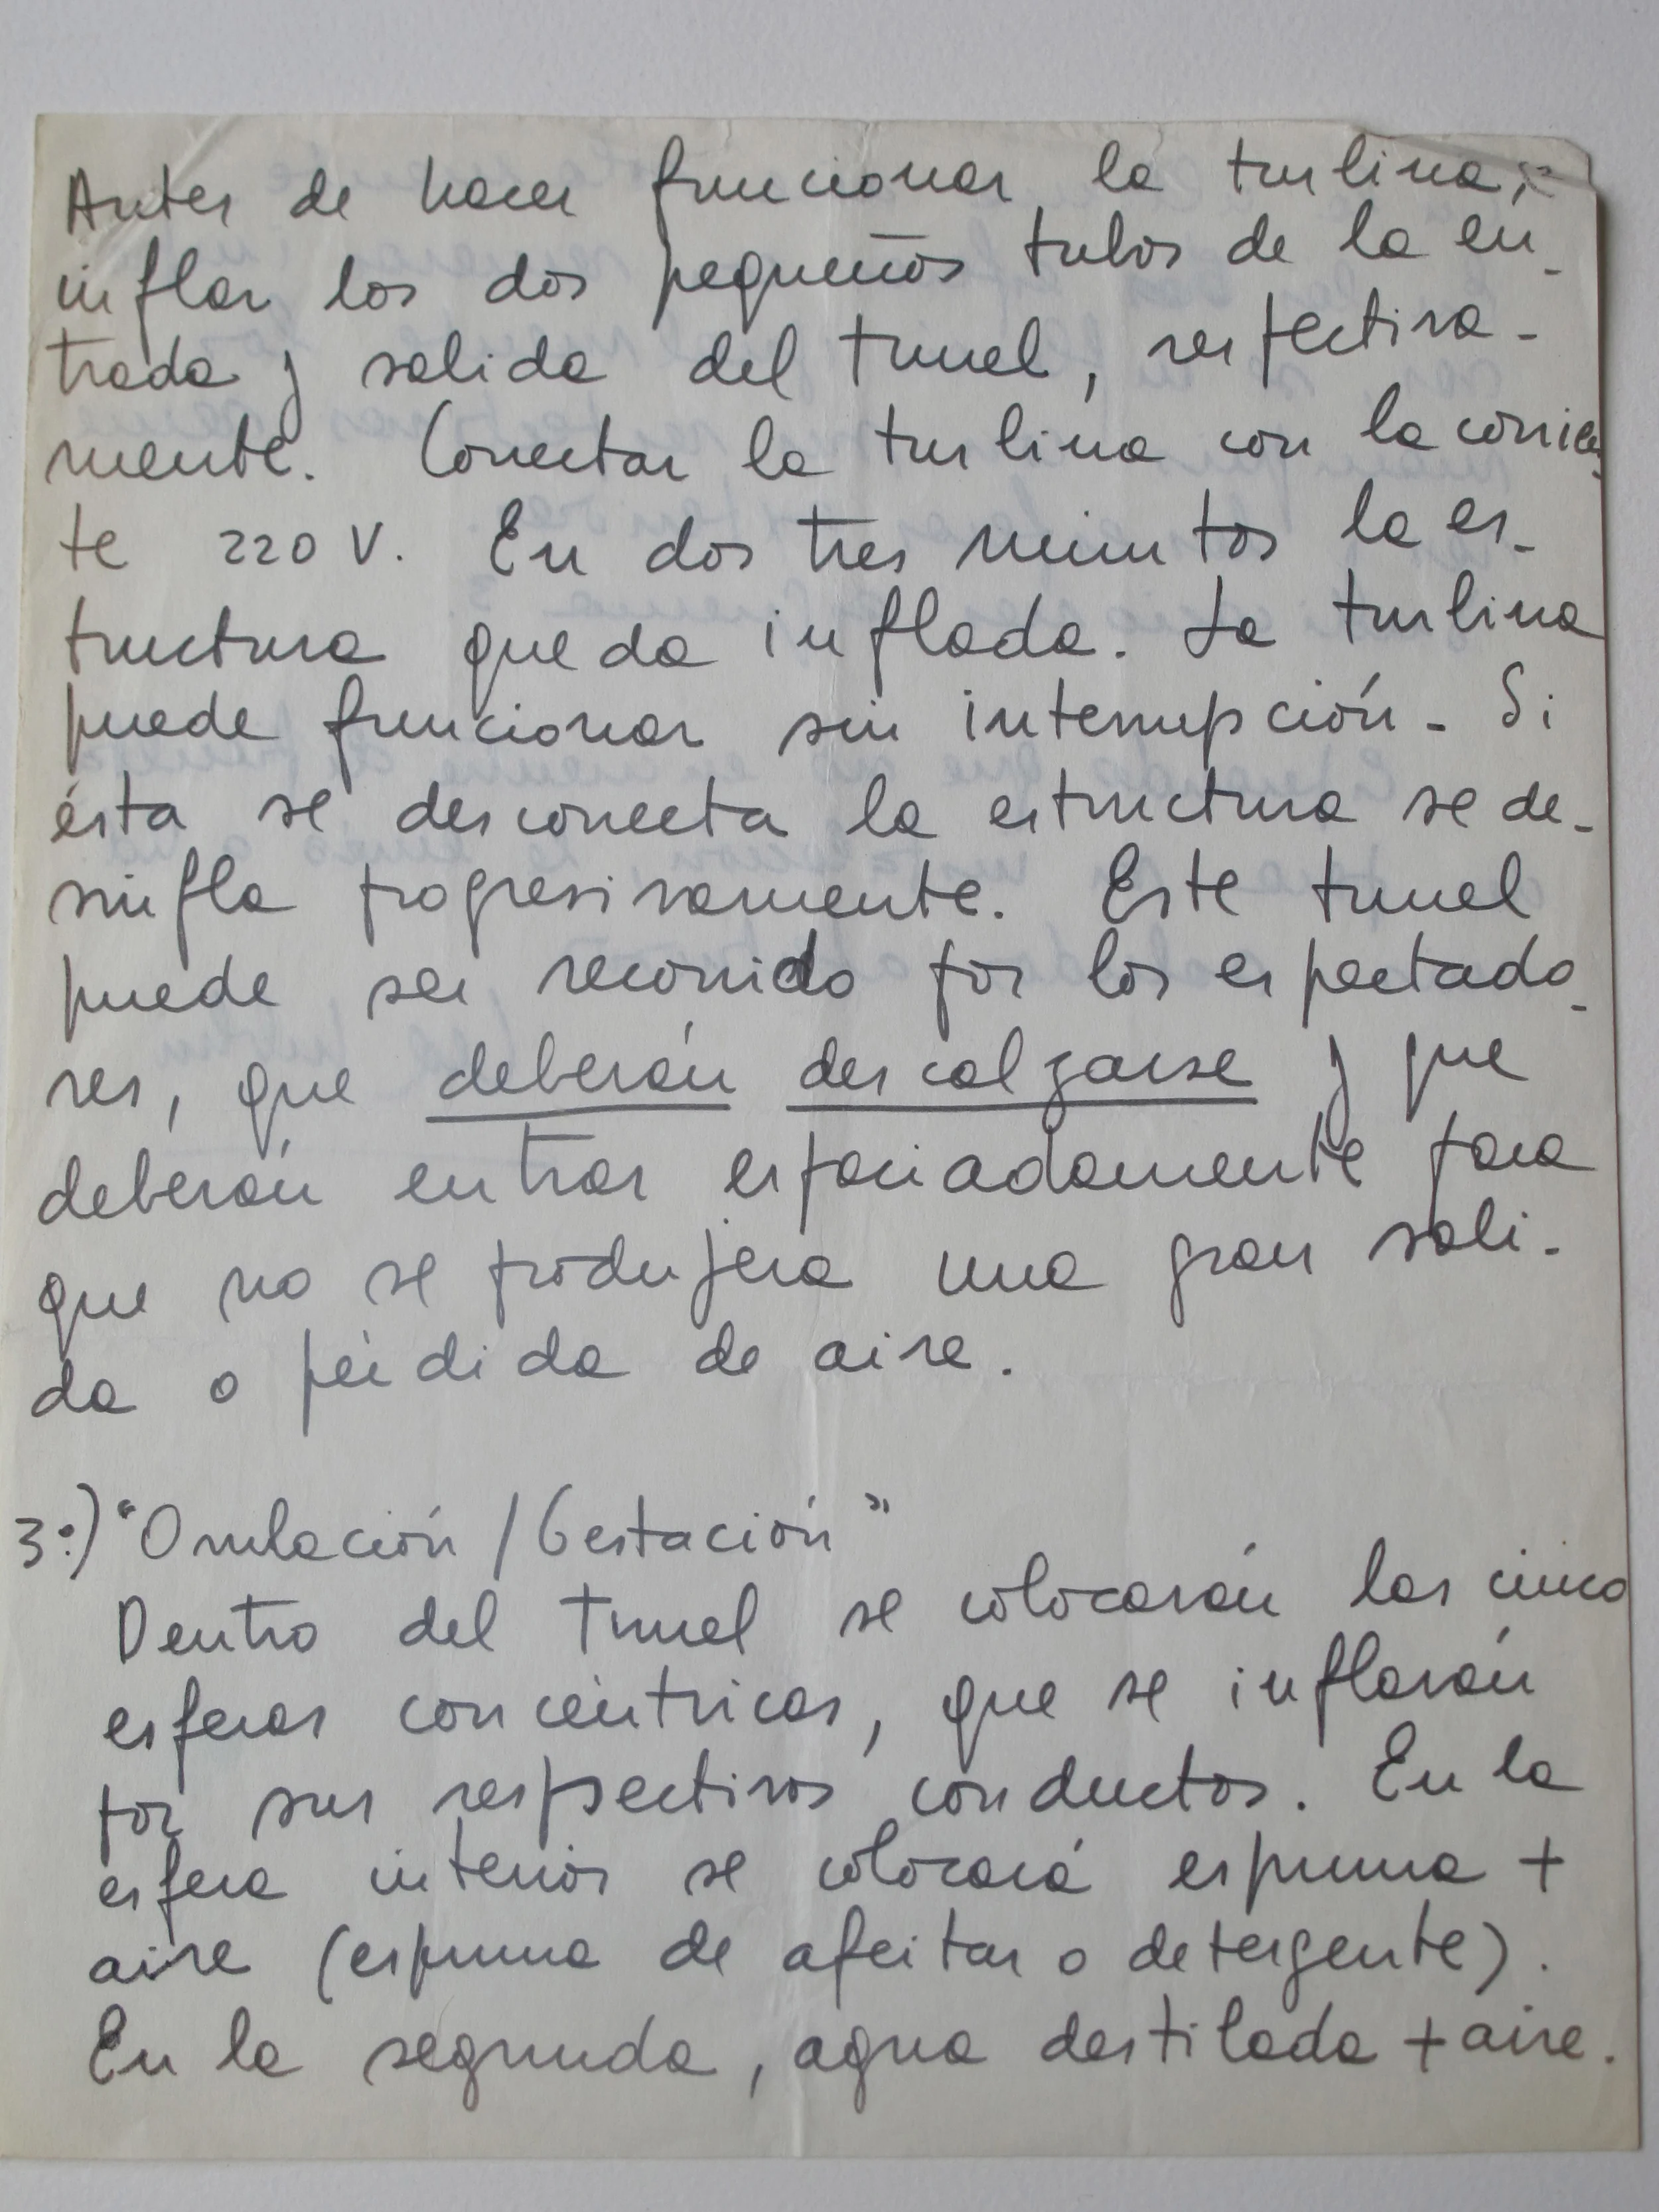 Antes de hacer funcionar la turbina,
inflar los dos pequeños tubos de la en-
trada y salida del tunel, respectiva-
mente. Conectar la turbina con la corrien-
te 220 V. En dos tres minutos la es-
tructura queda inflada. La turbina
puede funcionar sin interrupción. Si
ésta se desconecta la estructura se de-
sinfla progresivamente. Este tunel
puede ser recorrido por los espectado-
res, que deberán descalzarse y que
deberán entrar espaciadamente para
que no se produjera una gran sali-
da o pérdida de aire.
3º) "Ovulación / Gestación"
Dentro del tunel se colocarán las cinco
esferas concéntricas, que se inflarán
por sus respectivos conductos. En la
esfera interior se colocará espuma +
aire (espuma de afeitar o detergente).
En la segunda, agua destilada + aire.